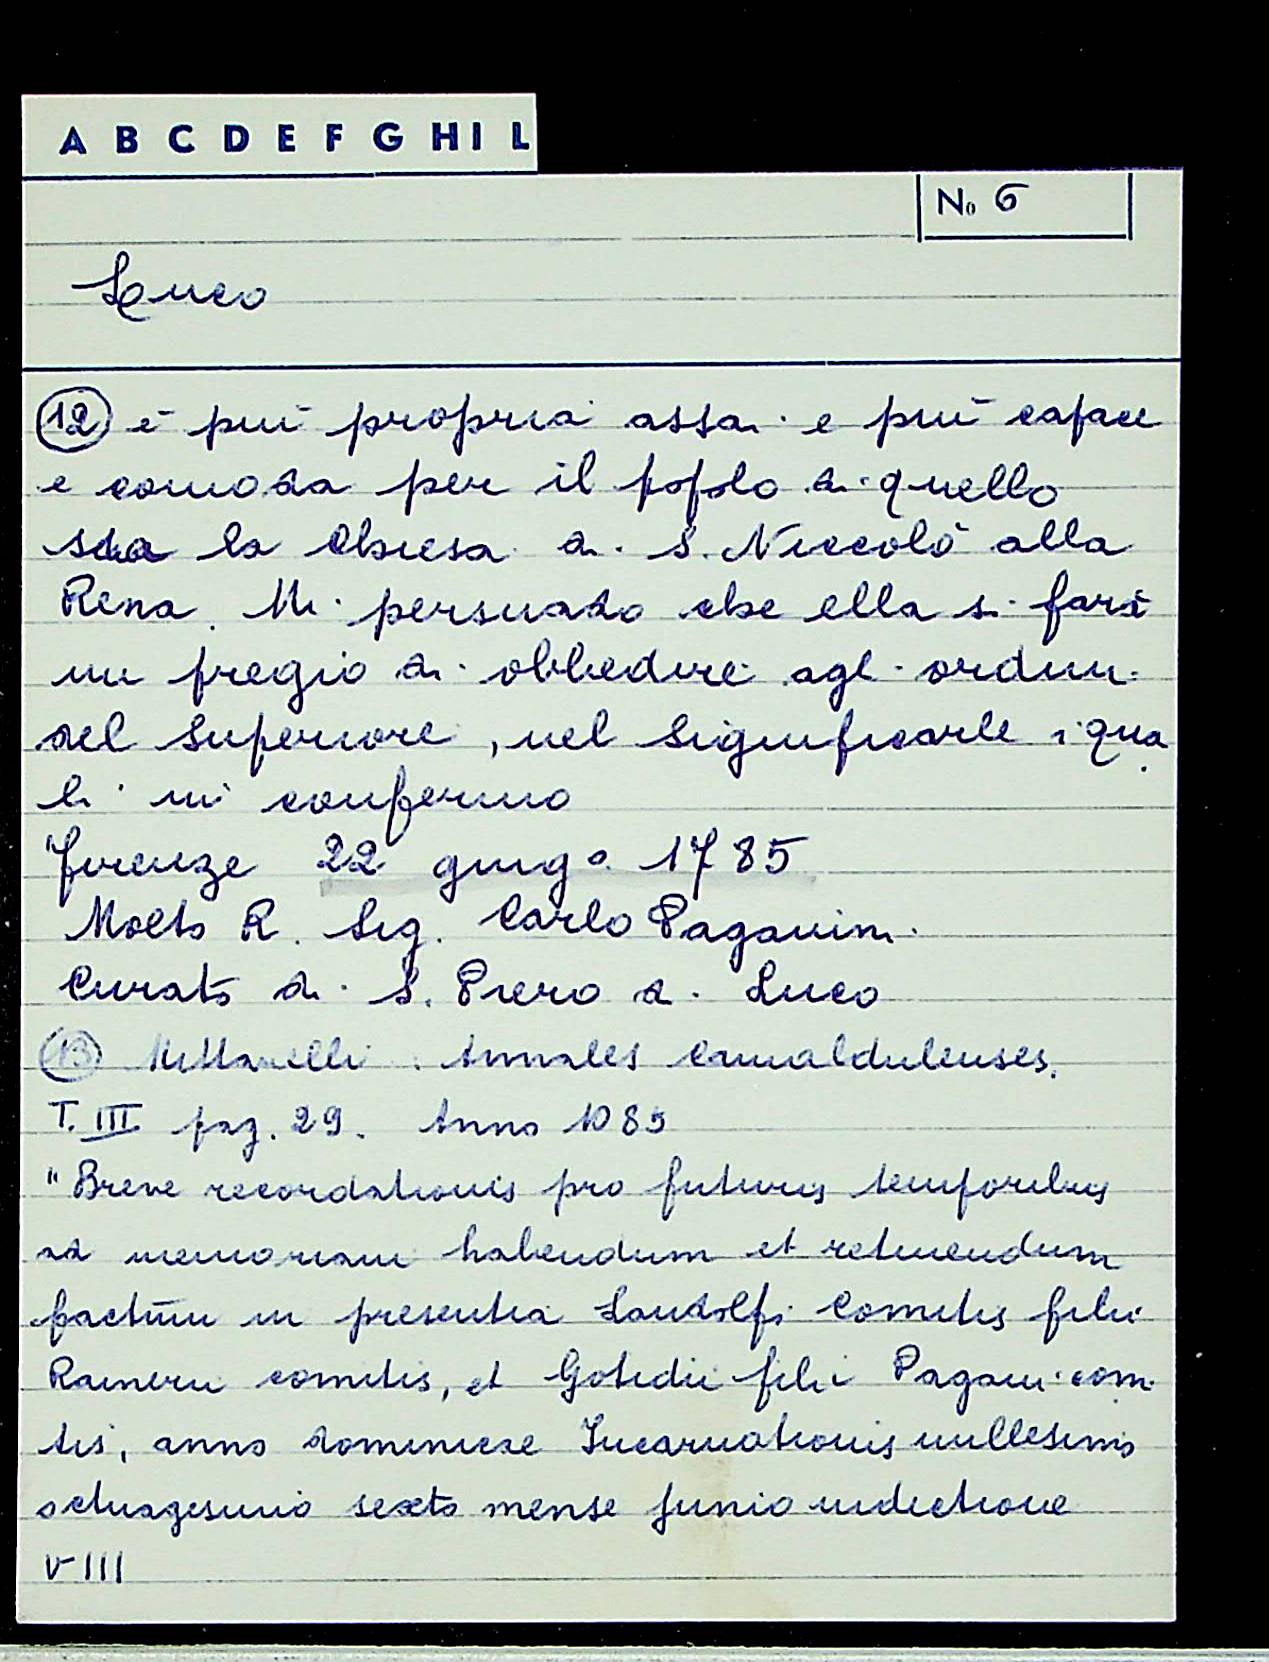 A B C D E F G H I L
No 6
Luco
(12) è più propria assai e più capace
e comoda per il popolo di quello
sia la Chiesa di S. Niccolò alla
Rena. Mi persuado che ella si farà
un pregio di obbedire agli ordini
del Superiore, nel significarle i qua
li mi confermo
Firenze 22 giug.o 1785
Molto R. Sig. Carlo Paganini
Curato di S. Piero a Luco
(13) Mittarelli. Annales Camaldulenses.
T. III pag. 29. Anno 1085
"Breve recordationis pro futuris temporibus
ad memoriam habendum et retinendum
factum in presentia Landolfi Comitis filii
Rainerii comitis, et Gotidii filii Pagani comi
tis, anno dominicae Incarnationis millesimo
octuagesimo sexto mense junio indictione
VIII